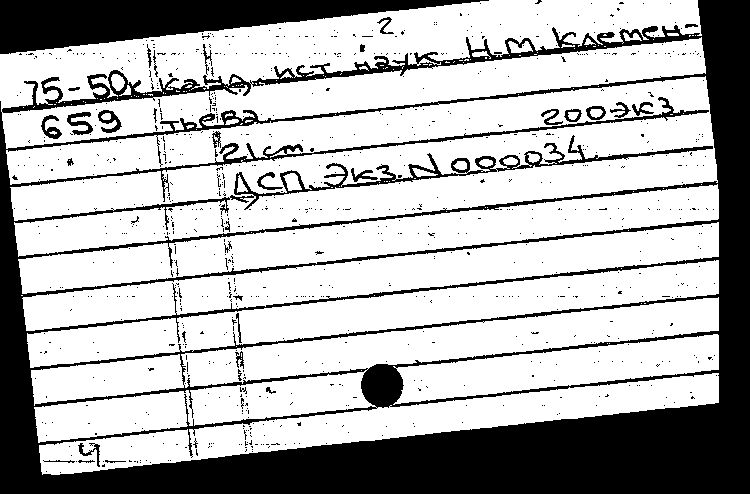 2.
75-50к канд. ист. наук Н.М. Клемен-
659 тьева.
200экз.
21 ст.
ДСП. Экз. N 000034.
4